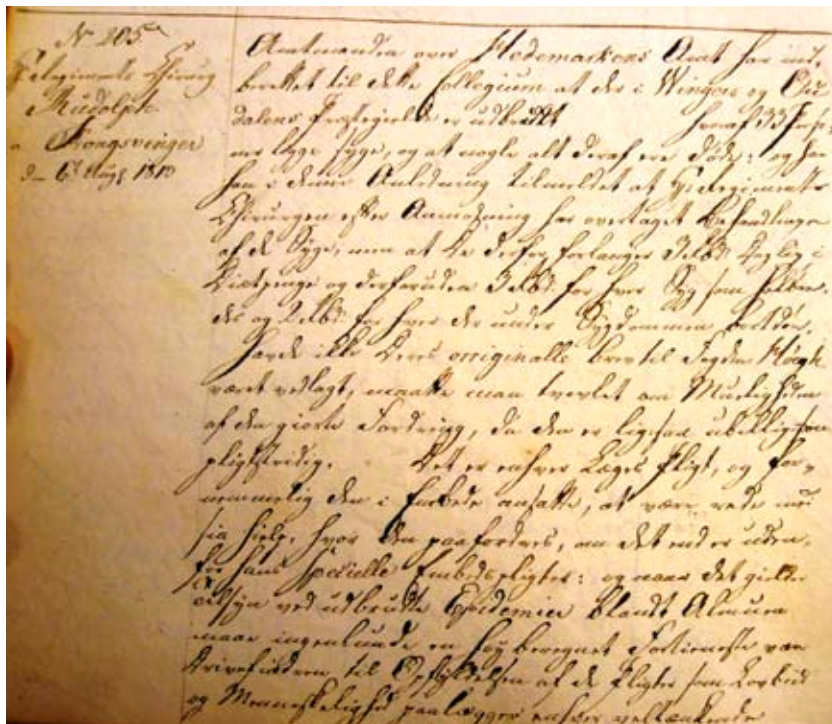 No 205
Regiments Chirurg
Rudolph
Kongsvinger
d. 6 Aug 1813
Amtmanden over Hedemarkens Amt har ind-
berettet til dette Collegium at der i Winger og Ou-
dalens Præstegield er udbrudt heraf 33 Perso-
ner ligge syge, og at nogle alt deraf ere døde; og har
han i denne Anledning tilmeldet at Hr Regiments
Chirurgen efter Anmodning har overtaget Behandlingen
af de Syge, men at De derfor forlanger 3 rbd. daglig i
Diætpenge og desforuden 3 rbd. for hver Syg som helbre-
des og 2 rbd. for hver der under Sygdommen bortdøe.
Havde ikke Deres originalle brev til Fogden Høegh
været vedlagt, maatte man tvivlet om Mueligheden
af den giorte Fordring, da den er ligesaa ubillig som
pligtstridig. Det er enhver Læges Pligt, og for-
nemmelig den i Embede ansatte, at være rede med
sin Hielp, hvor den paafordres, om det end er uden-
for hans specielle Embedspligter: og naar det gielder
tilsyn ved udbrudte Epidemier blandt Almuen
maae ingenlunde en høy beregnet Fortieneste være
Drivefiedren til Opfyldelsen af de Pligter som Lovbud
og Menneskelighed paalægger enhver vel tænkende